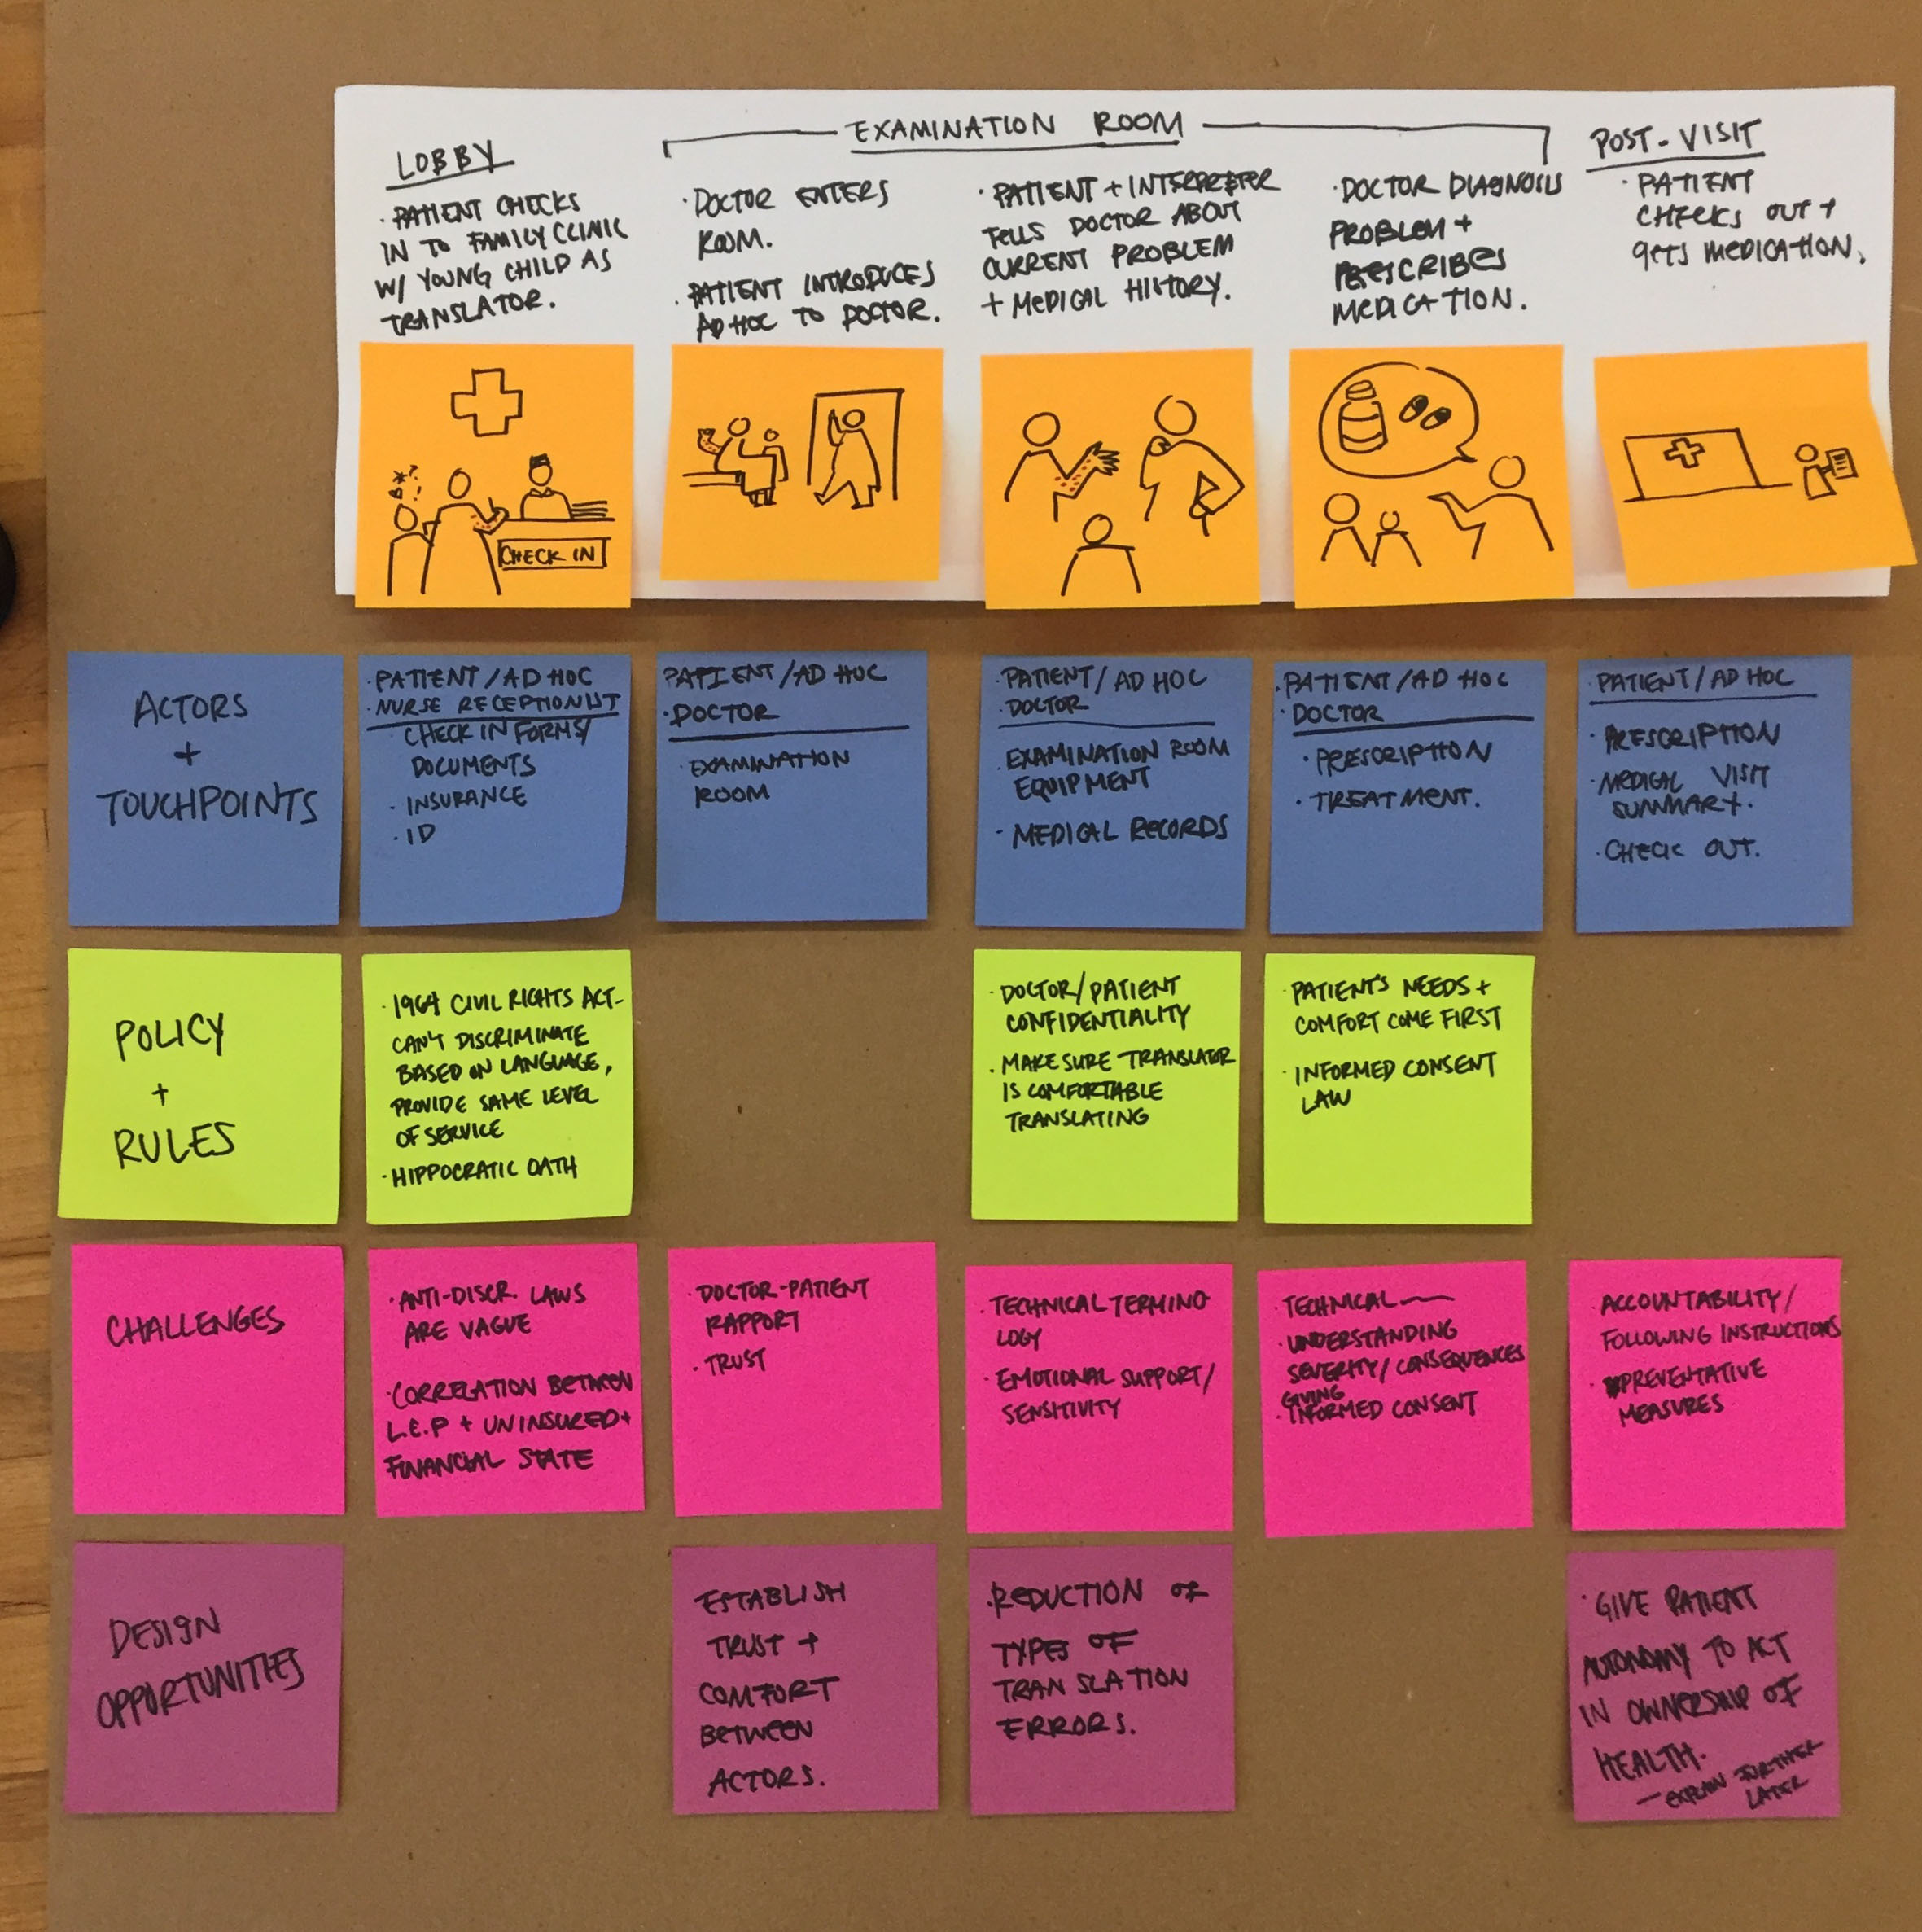 LOBBY
· PATIENT CHECKS
IN TO FAMILY CLINIC
W/ YOUNG CHILD AS
TRANSLATOR.
EXAMINATION ROOM
· DOCTOR ENTERS
ROOM.
· PATIENT INTRODUCES
AD HOC TO DOCTOR.
· PATIENT + INTERPRETER
TELLS DOCTOR ABOUT
CURRENT PROBLEM
+ MEDICAL HISTORY.
· DOCTOR DIAGNOSIS
PROBLEM +
PRESCRIBES
MEDICATION.
POST-VISIT
· PATIENT
CHECKS OUT +
GETS MEDICATION.
CHECK IN
ACTORS
+
TOUCHPOINTS
· PATIENT/AD HOC
· NURSE RECEPTIONIST
CHECK IN FORMS/
DOCUMENTS
· INSURANCE
· ID
PATIENT/AD HOC
· DOCTOR
· EXAMINATION
ROOM
· PATIENT/AD HOC
· DOCTOR
· EXAMINATION ROOM
EQUIPMENT
· MEDICAL RECORDS
· PATIENT/AD HOC
· DOCTOR
· PRESCRIPTION
· TREATMENT.
PATIENT/AD HOC
· PRESCRIPTION
· MEDICAL VISIT
SUMMARY.
· CHECK OUT.
POLICY
+
RULES
· 1964 CIVIL RIGHTS ACT-
CAN'T DISCRIMINATE
BASED ON LANGUAGE,
PROVIDE SAME LEVEL
OF SERVICE
· HIPPOCRATIC OATH
· DOCTOR/PATIENT
CONFIDENTIALITY
· MAKE SURE TRANSLATOR
IS COMFORTABLE
TRANSLATING
· PATIENT'S NEEDS +
COMFORT COME FIRST
· INFORMED CONSENT
LAW
CHALLENGES
· ANTI-DISCR. LAWS
ARE VAGUE
· CORRELATION BETWEEN
L.E.P + UNINSURED +
FINANCIAL STATE
· DOCTOR-PATIENT
RAPPORT
· TRUST
· TECHNICAL TERMINO
LOGY
· EMOTIONAL SUPPORT/
SENSITIVITY
· TECHNICAL —
· UNDERSTANDING
SEVERITY/CONSEQUENCES
GIVING
· INFORMED CONSENT
· ACCOUNTABILITY/
FOLLOWING INSTRUCTIONS
· PREVENTATIVE
MEASURES
DESIGN
OPPORTUNITIES
ESTABLISH
TRUST +
COMFORT
BETWEEN
ACTORS.
· REDUCTION OF
TYPES OF
TRANSLATION
ERRORS.
· GIVE PATIENT
AUTONOMY TO ACT
IN OWNERSHIP OF
HEALTH.
— EXPLAIN FURTHER
LATER